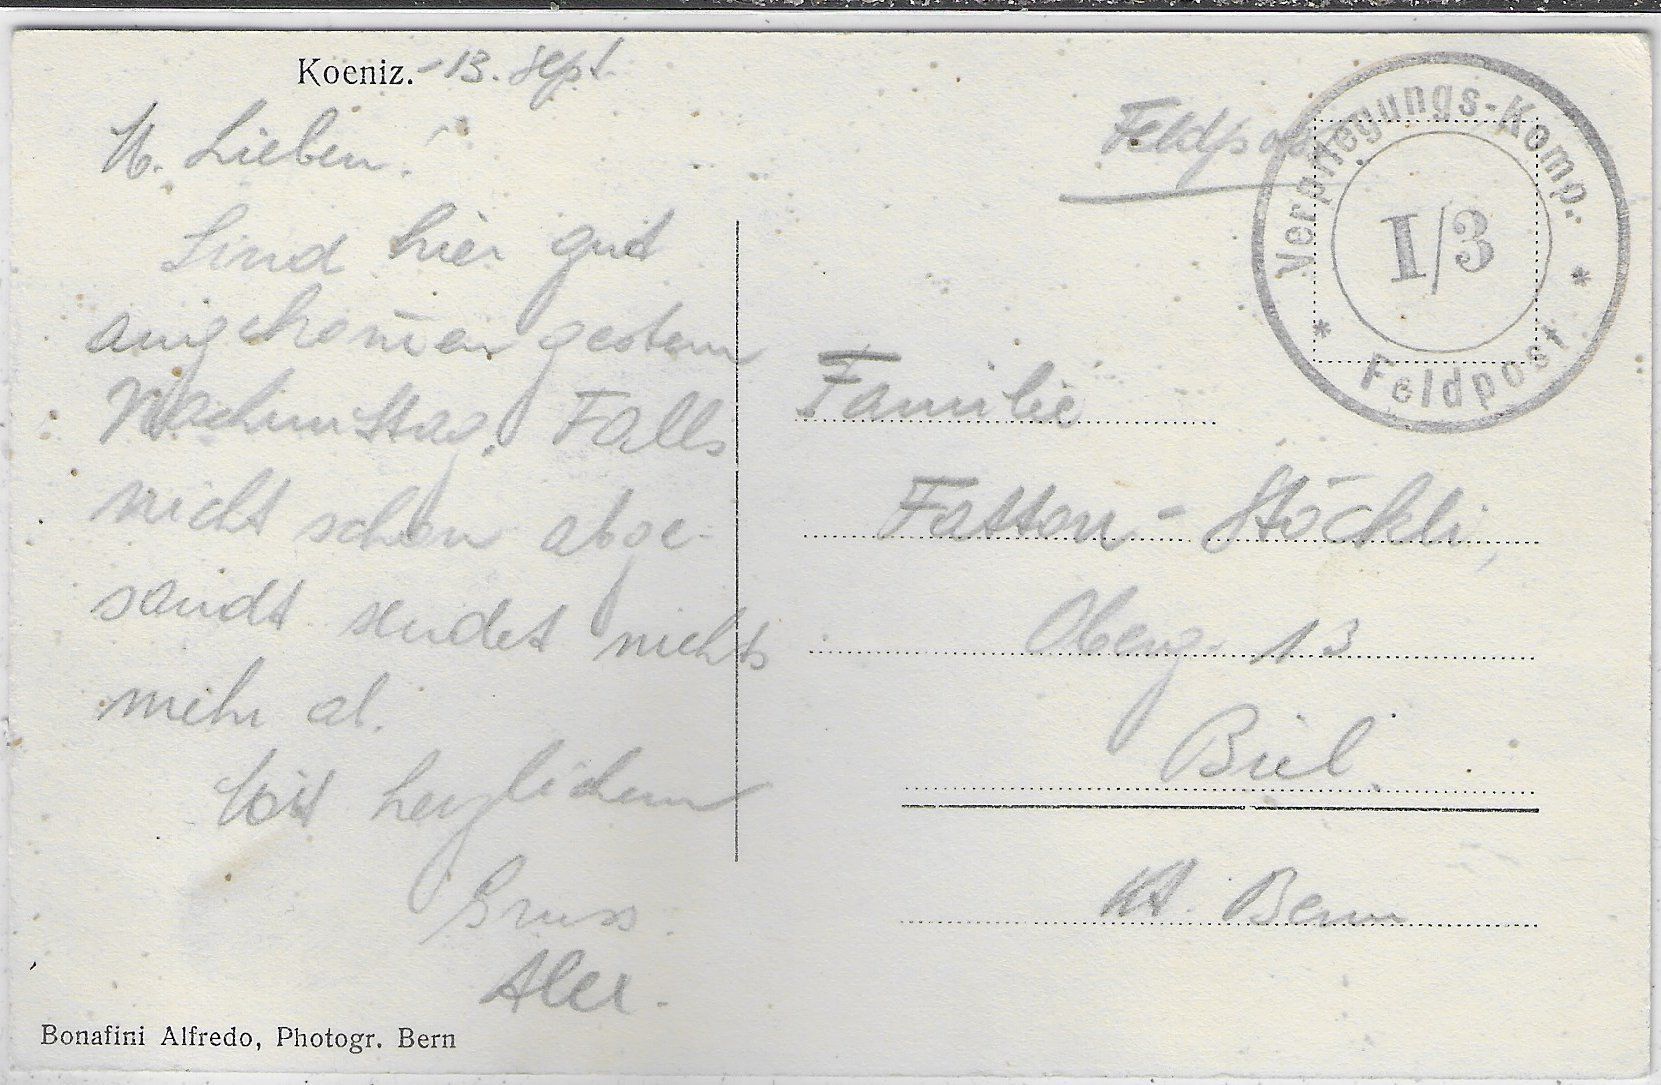 Koeniz. - 13. Sept.
M. Lieben!
Sind hier gut
angekom̄en gestern
Nachmittag. Falls
nicht schon abge-
sandt sendet nichts
mehr ab.
Mit herzlichem
Gruss.
Bonafini Alfredo, Photogr. Bern
Feldpost
Verpflegungs-Komp.
I/3
* Feldpost *
Familie
Fatton-Stöckli,
Oberg. 13
Biel.
Kt. Bern